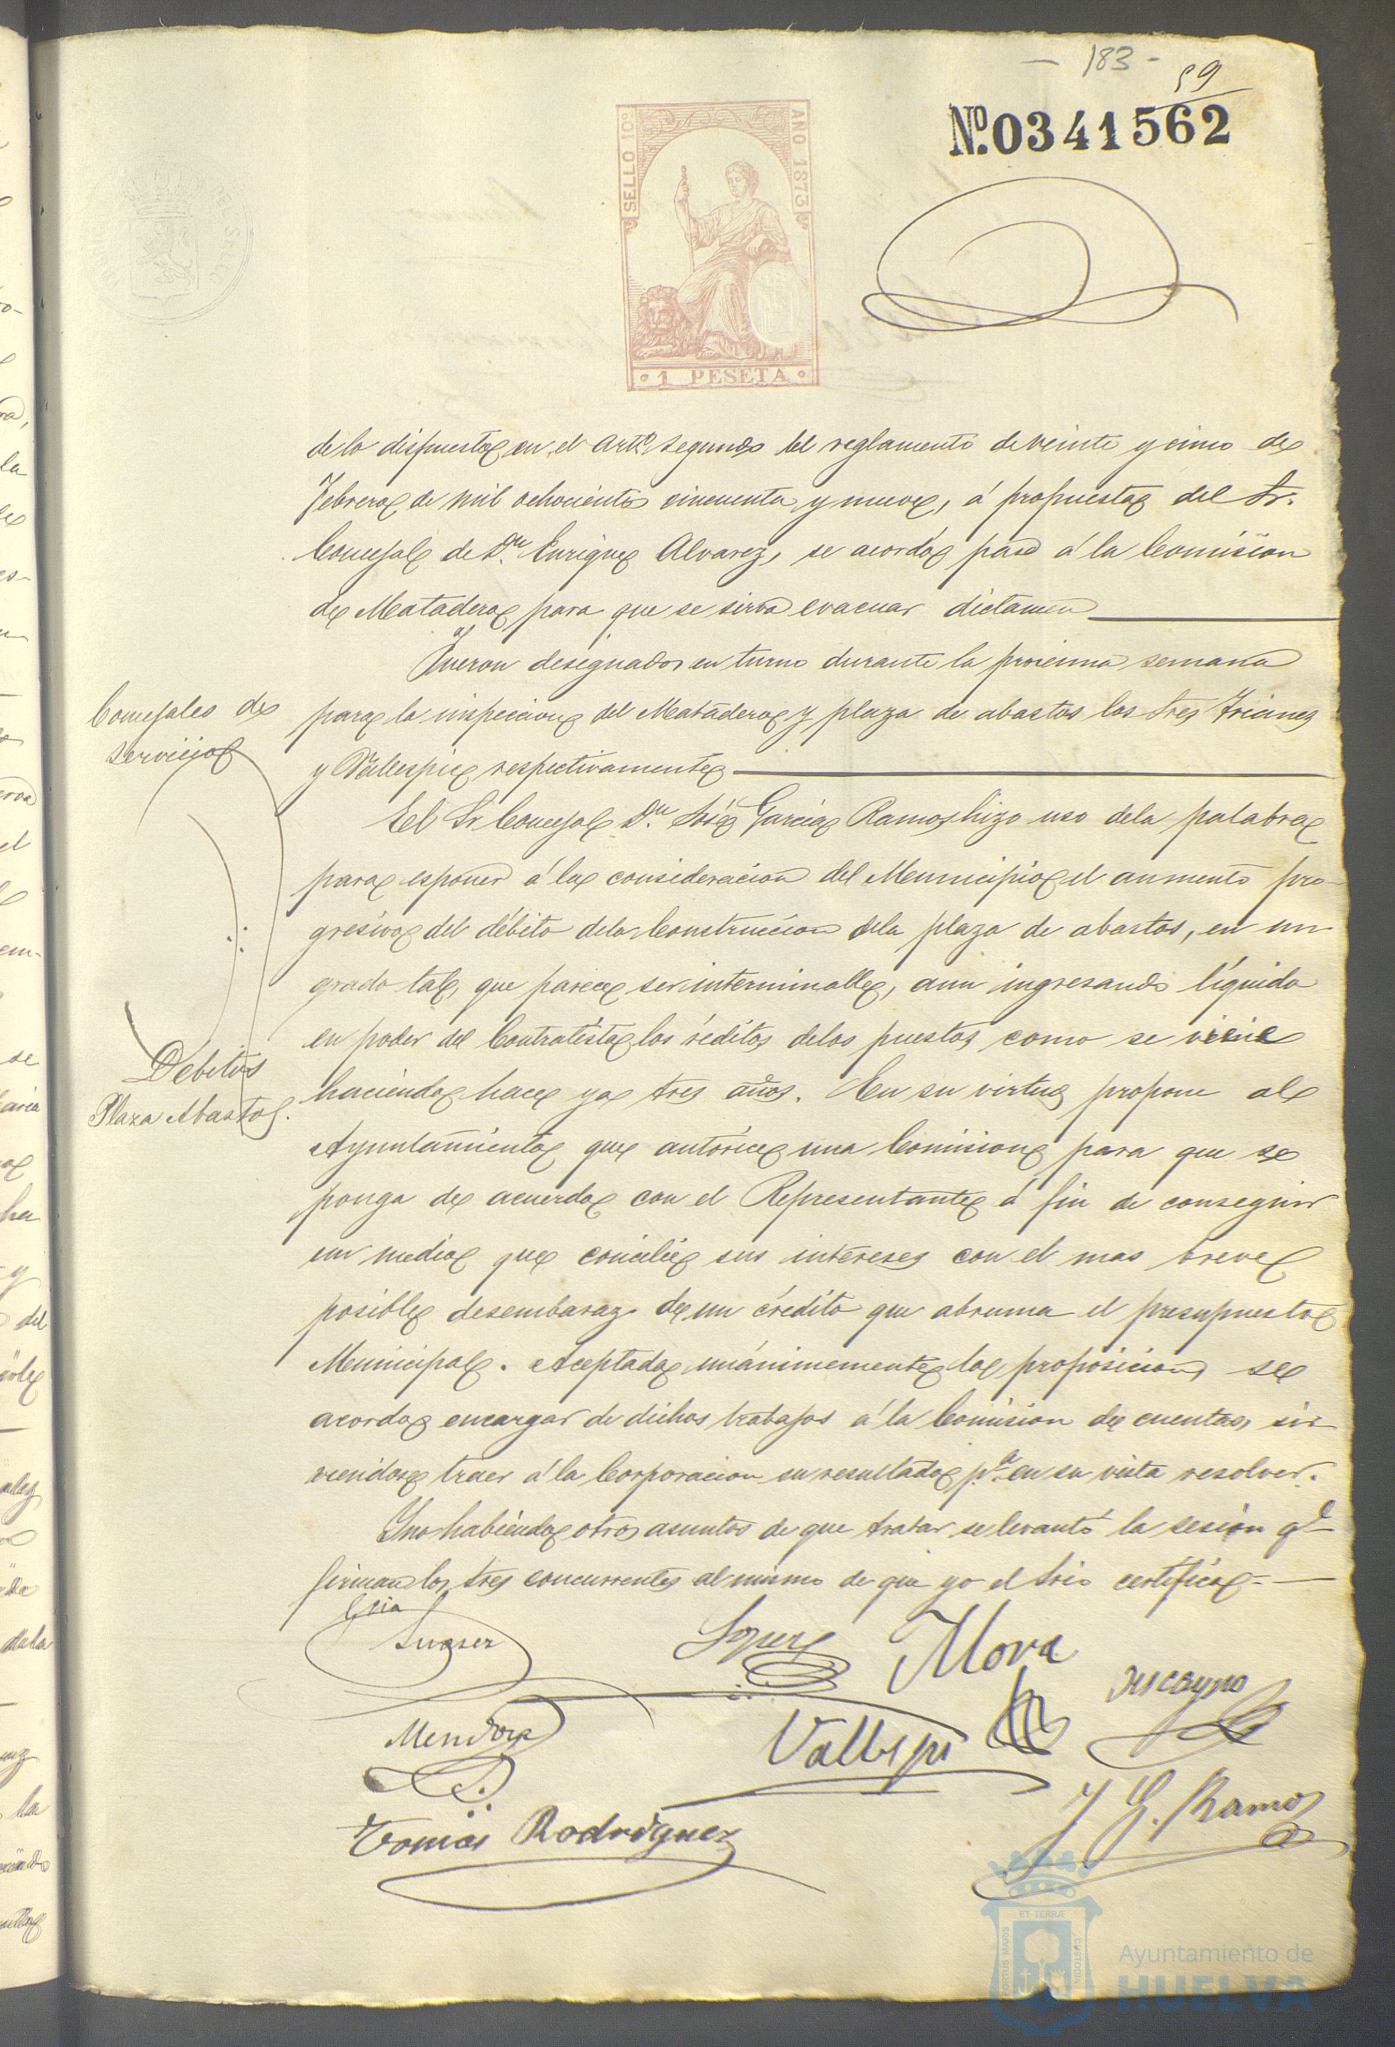 - 183 -
59
Nº.0341562
SELLO 10º
AÑO 1873
1 PESETA
de lo dispuesto en el Artº segundo del reglamento de veinte y cinco de
Febrero de mil ochocientos cincuenta y nueve, á propuesta del Sr.
Concejal de Dn. Enrique Alvarez, se acordó pase á la Comision
de Matadero para que se sirva evacuar dictamen
Fueron designados en turno durante la procsima semana
Concejales de
servicio
para la inspeccion del Matadero y plaza de abastos los Sres Trianes
y Vallespin respectivamente
El Sr Concejal Dn. José Garcia Ramos hizo uso dela palabra
para esponer á la consideracion del Municipio el aumento pro-
gresivo del débito dela Construccion dela plaza de abastos, en un
grado tal, que parece ser interminable, aun ingresando líquido
en poder del Contratista los réditos delos puestos como se viene
haciendo hace ya tres años. En su virtud propone al
Debitos
Plaza Abastos.
Ayuntamiento que autorice una Comision para que se
ponga de acuerdo con el Representante á fin de conseguir
un medio que concilie sus intereses con el mas breve
posible desembaraz de un crédito que abruma el presupuesto
Municipal. Aceptada unánimemente la proposicion se
acordó encargar de dichos trabajos á la Comision de cuentas, sir-
viendose traer á la Corporacion su resultado pa. en su vista resolver.
Y no habiendo otros asuntos de que tratar se levantó la sesion qe
firman los Sres concurrentes al mismo de que yo el Srio certifico.
Gcia
Suaser
Lopez
Mora
Viscayno
Mendoza
Vallespi
Tomás Rodriguez
J G. Ramos
PORTUS MARIS
ET TERRÆ
CUSTODIA
Ayuntamiento de
HUELVA